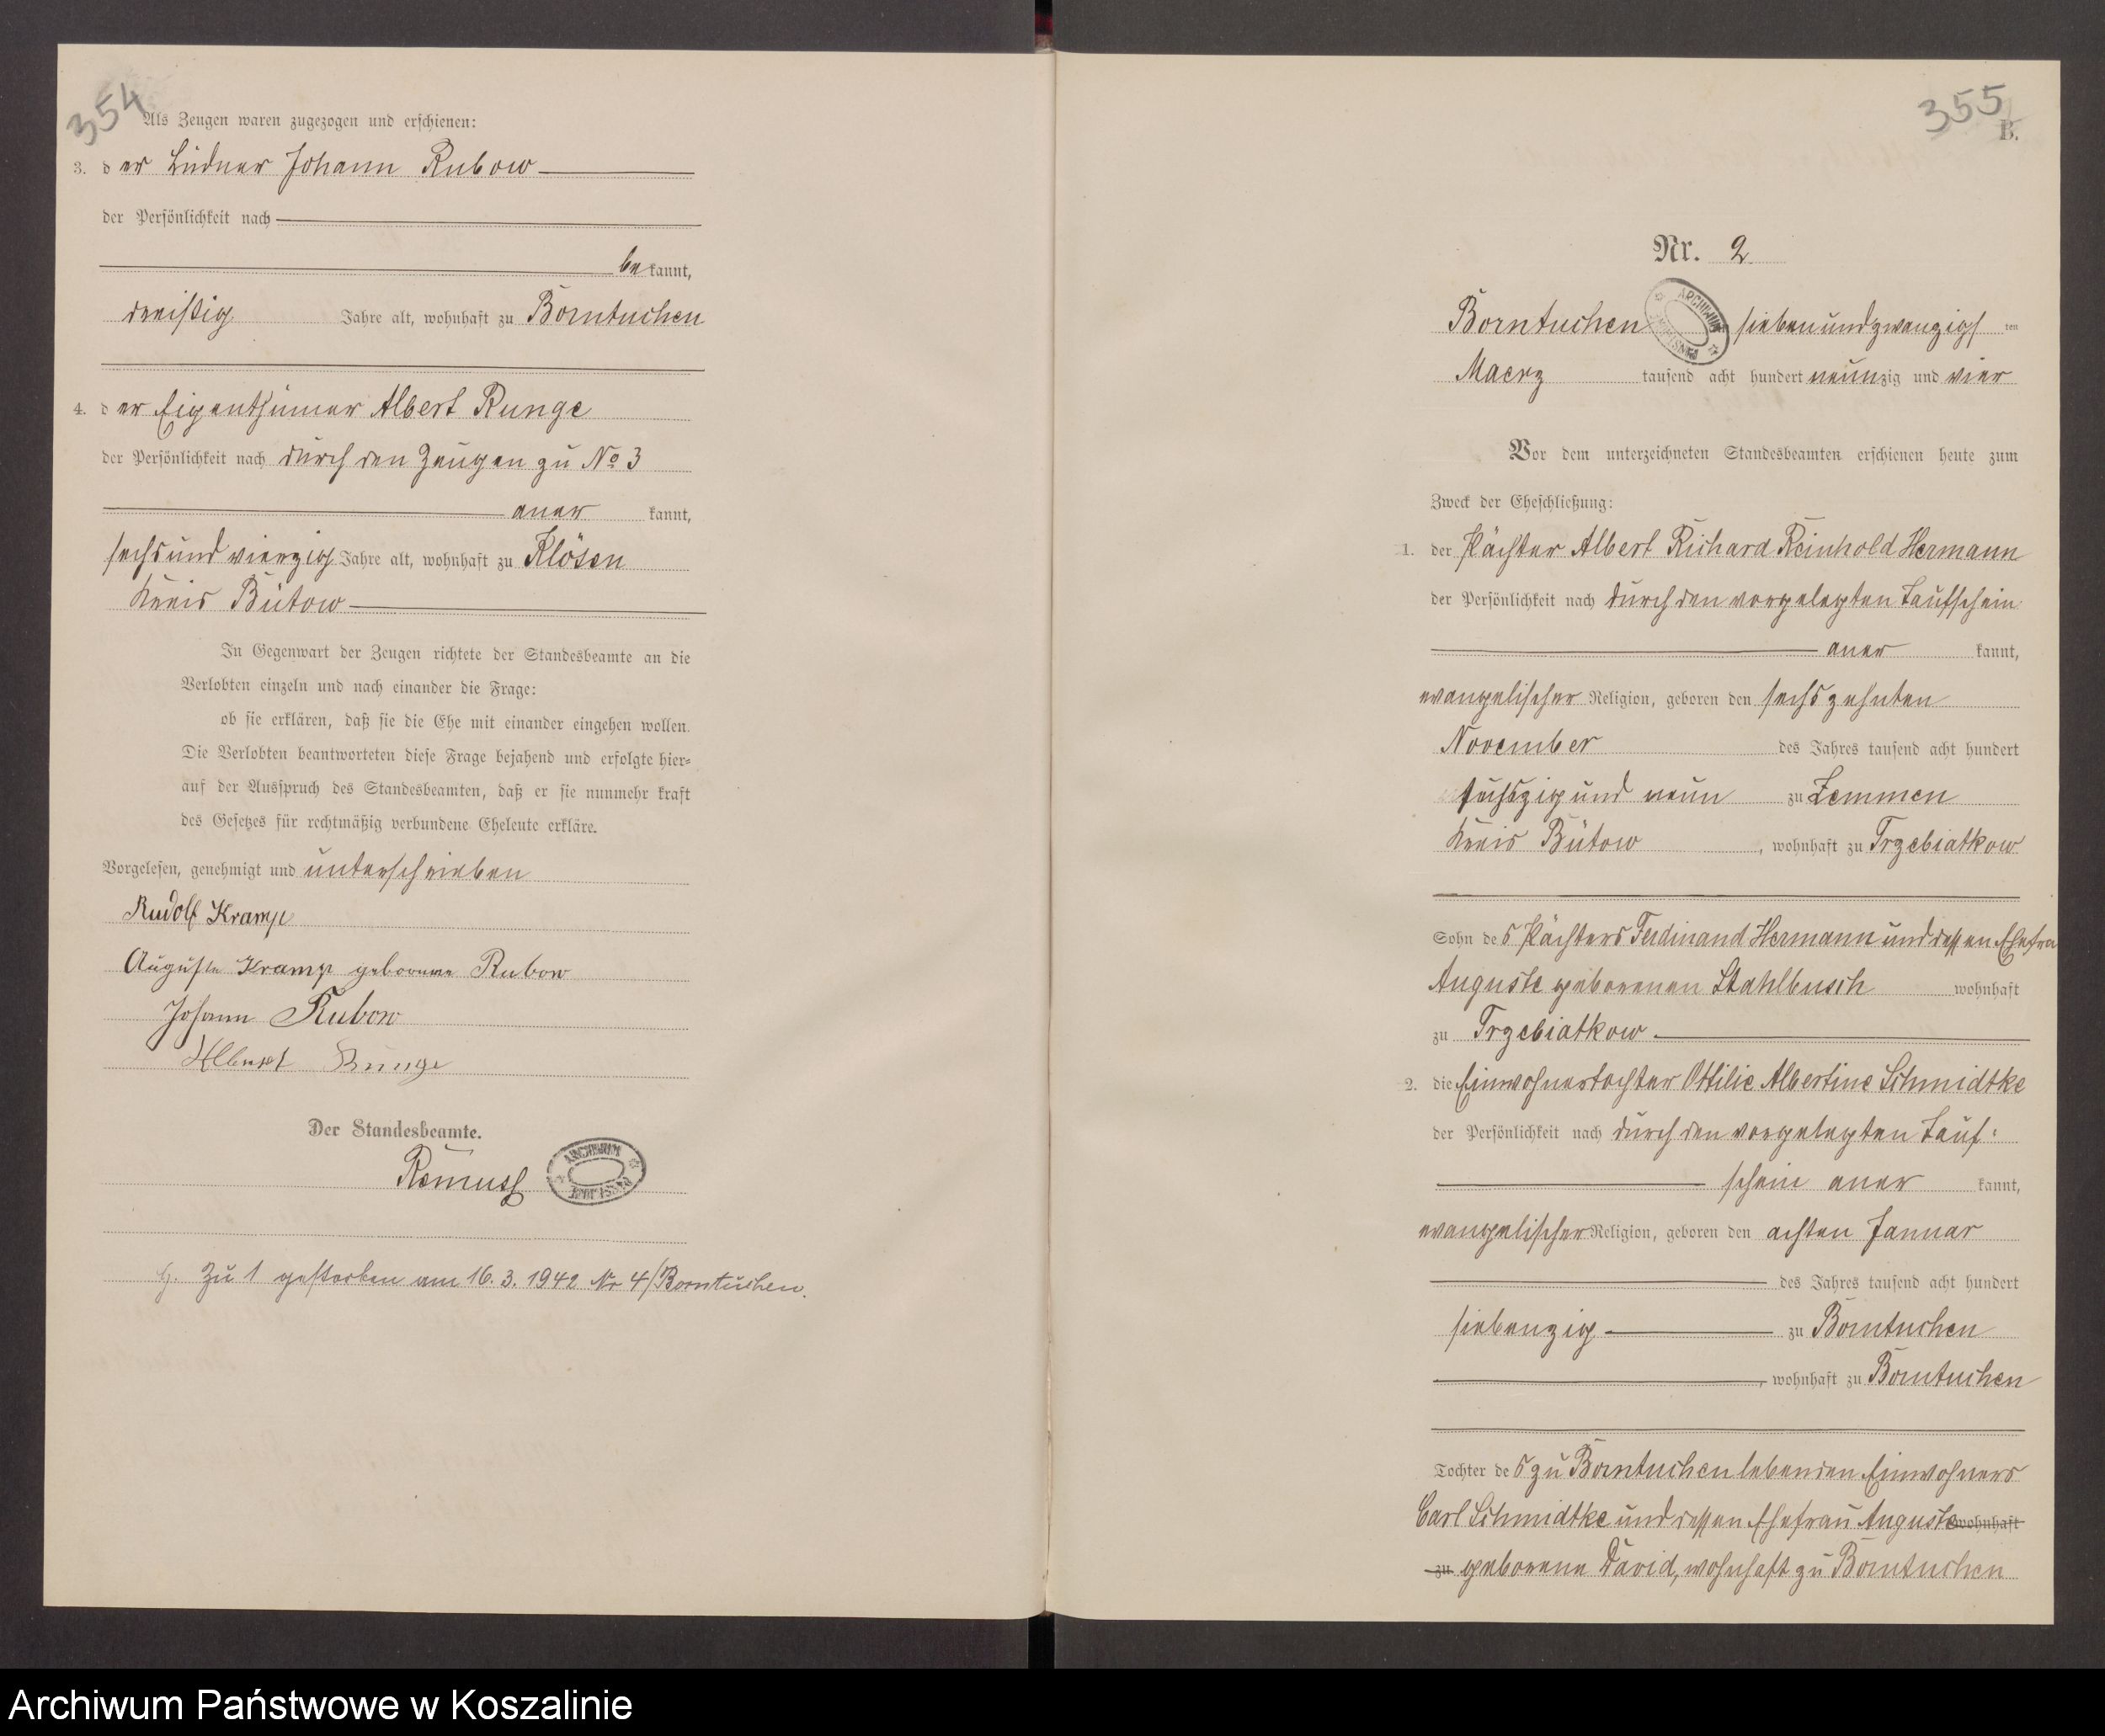 354
Als Zeugen waren zugezogen und erschienen:
3. der Büdner Johann Rubow
der Persönlichkeit nach
bekannt,
dreißig Jahre alt, wohnhaft zu Borntuchen
4. der Eigenthümer Albert Runge
der Persönlichkeit nach durch den Zeugen zu No 3
aner kannt,
sechs und vierzig Jahre alt, wohnhaft zu Klösen
Kreis Bütow
In Gegenwart der Zeugen richtete der Standesbeamte an die
Verlobten einzeln und nach einander die Frage:
ob sie erklären, daß sie die Ehe mit einander eingehen wollen.
Die Verlobten beantworteten diese Frage bejahend und erfolgte hier-
auf der Ausspruch des Standesbeamten, daß er sie nunmehr kraft
des Gesetzes für rechtmäßig verbundene Eheleute erkläre.
Vorgelesen, genehmigt und unterschrieben
Rudolf Kramp
Auguste Kramp geborene Rubow
Johann Rubow
Albert Runge
Der Standesbeamte.
Remus
ARCHIWUM PAŃSTWOWE
H. Zu 1 gestorben am 16. 3. 1942 Nr 4/Borntuchen.
355
B.
Nr. 2
Borntuchen siebenundzwanzigsten
ARCHIWUM PAŃSTWOWE
Maerz tausend acht hundert neunzig und vier
Vor dem unterzeichneten Standesbeamten erschienen heute zum
Zweck der Eheschließung:
1. der Pächter Albert Richard Reinhold Hermann
der Persönlichkeit nach durch den vorgelegten Taufschein
aner kannt,
evangelischer Religion, geboren den sechszehnten
November des Jahres tausend acht hundert
sechszig und neun zu Zemmen
Kreis Bütow, wohnhaft zu Trzebiatkow
Sohn des Pächters Ferdinand Hermann und dessen Ehefrau
Auguste geborenen Stahlbusch wohnhaft
zu Trzebiatkow
2. die Einwohnertochter Ottilie Albertine Schmidtke
der Persönlichkeit nach durch den vorgelegten Tauf-
schein aner kannt,
evangelischer Religion, geboren den achten Januar
des Jahres tausend acht hundert
siebenzig zu Borntuchen
, wohnhaft zu Borntuchen
Tochter des zu Borntuchen lebenden Einwohners
Carl Schmidtke und dessen Ehefrau Auguste wohnhaft
zu geborene David, wohnhaft zu Borntuchen
Archiwum Państwowe w Koszalinie